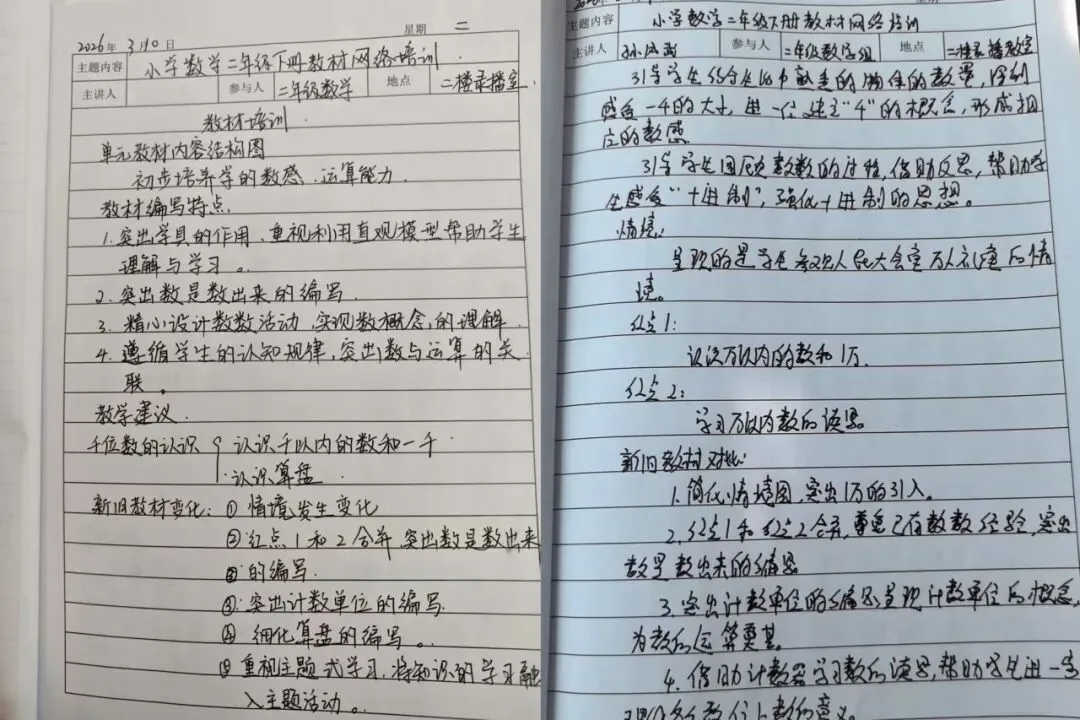 2026年 3月10日 星期 二
主题内容 小学数学二年级下册教材网络培训
主讲人 参与人 二年级数学 地点 二楼录播室
教材培训
单元教材内容结构图
初步培养学的数感、运算能力
教材编写特点
1. 突出学具的作用、重视利用直观模型帮助学生
理解与学习。
2. 突出数是数出来的编写.
3. 精心设计数数活动,实现数概念的理解.
4. 遵循学生的认知规律,突出数与运算的关
联。
教学建议.
千位数的认识 认识千以内的数和一千
认识算盘
新旧教材变化: ①情境发生变化
②红点1和2合并,突出数是数出来
的编写.
③突出计数单位的编写
④ 细化算盘的编写。
重视主题式学习,将知识的学习融
入主题活动。
主题内容 小学数学二年级下册教材网络培训
主讲人 参与人 二年级数学组 地点 二楼录播教室
引导学生结合生活中熟悉的物体的数量,
感受一个的大小,进一位建立“个”的概念,形成相
应的数感
引导学生回顾数数的过程,借助反思,帮助学
生感受“十进制”,强化十进制的思想。
情境:
呈现的是学生参观人民大会堂万人礼堂的情
境。
红点1:
认识万以内的数和1万.
红点2:
学习万以内数的读写.
新旧教材对比:
1. 简化情境图,突出1万的引入。
2. 红点1和红点2合并,尊重已有数数经验,突出
数是数出来的编写
3. 突出计数单位的编写,呈现计数单位的概念,
为数的运算奠基。
4. 借助计数器学习数的读写,帮助学生进一步
理解各数位上数的意义。